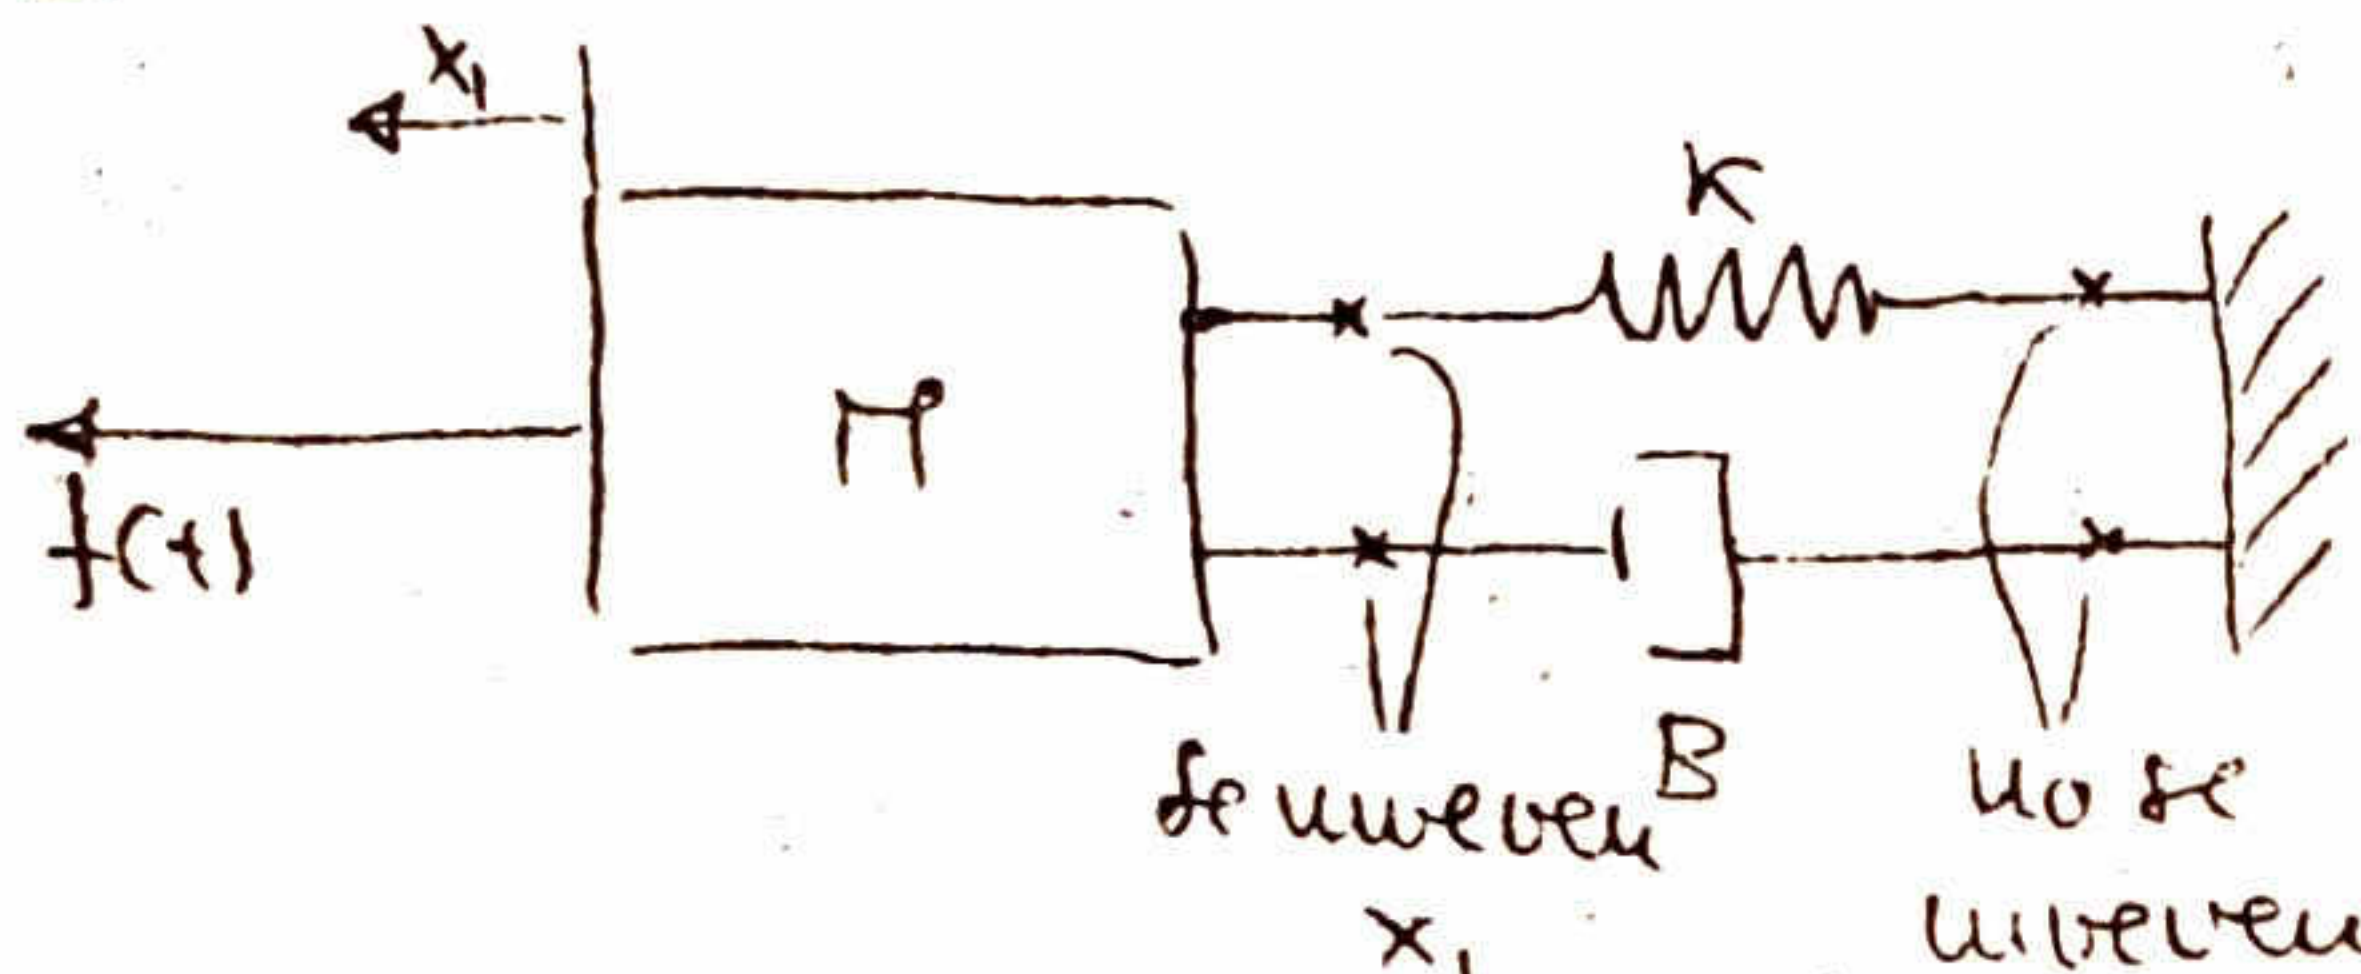 x₁
K
M
f(t)
B
se mueven
x₁
no se
mueven